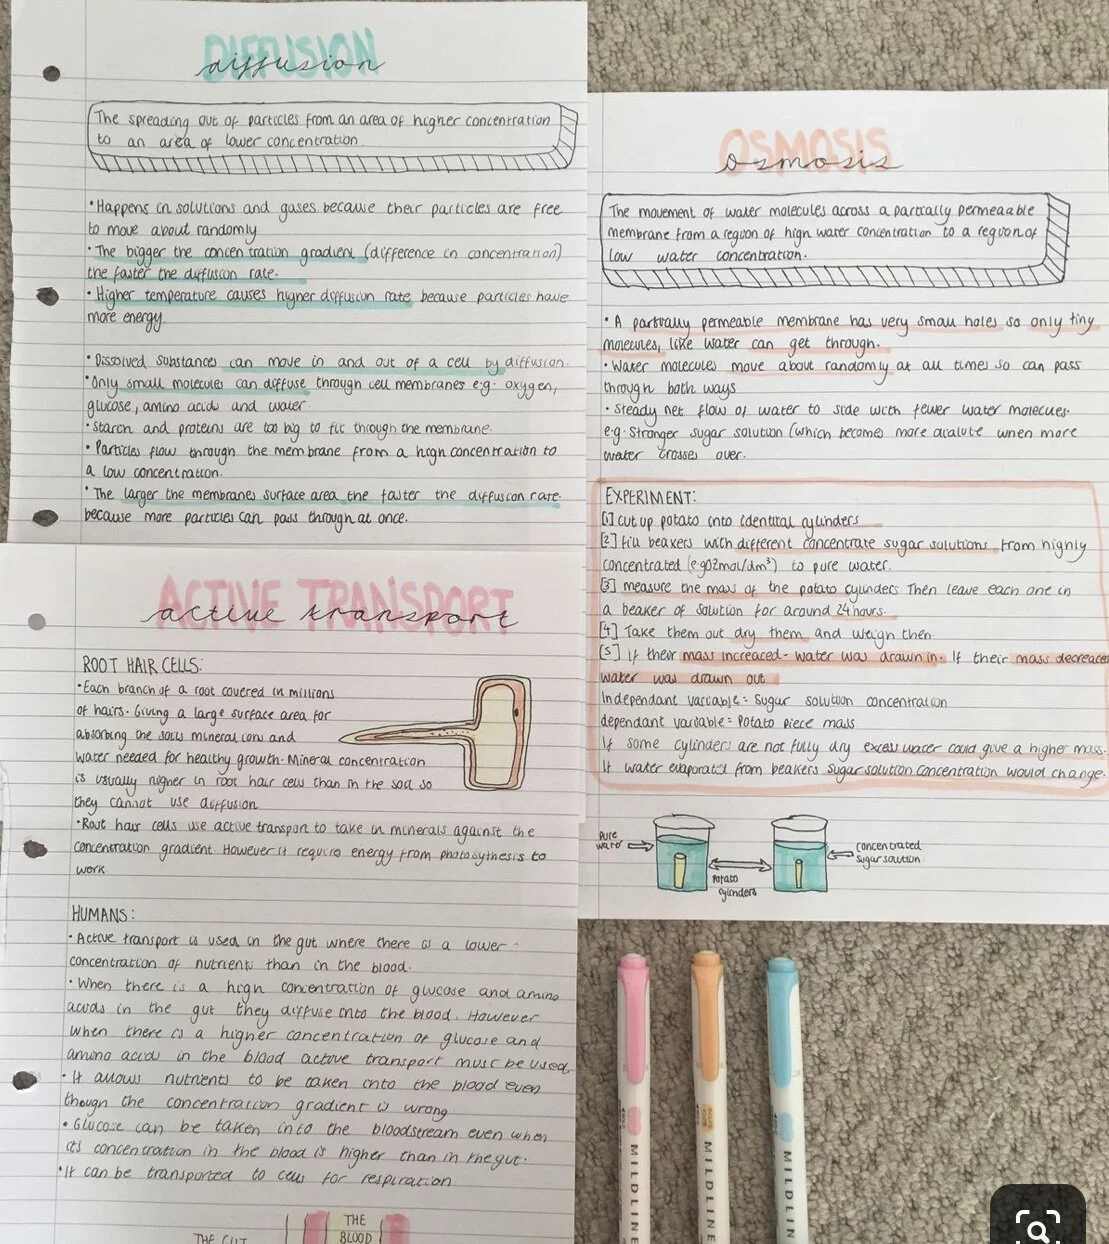 DIFFUSION
diffusion
The spreading out of particles from an area of higher concentration
to an area of lower concentration.
• Happens in solutions and gases because their particles are free
to move about randomly
• The bigger the concentration gradient (difference in concentration)
the faster the diffusion rate.
• Higher temperature causes higher diffusion rate because particles have
more energy.
• Dissolved substances can move in and out of a cell by diffusion.
• Only small molecules can diffuse through cell membranes e.g. oxygen,
glucose, amino acids and water.
• Starch and proteins are too big to fit through the membrane.
• Particles flow through the membrane from a high concentration to
a low concentration.
• The larger the membranes surface area the faster the diffusion rate.
because more particles can pass through at once.
ACTIVE TRANSPORT
active transport
ROOT HAIR CELLS:
• Each branch of a root covered in millions
of hairs. Giving a large surface area for
absorbing the soils mineral ions and
water needed for healthy growth. Mineral concentration
is usually higher in root hair cells than in the soil so
they cannot use diffusion
• Root hair cells use active transport to take in minerals against the
concentration gradient. However it requires energy from photosythesis to
work.
HUMANS:
• Active transport is used in the gut where there is a lower
concentration of nutrients than in the blood.
• When there is a high concentration of glucose and amino
acids in the gut they diffuse into the blood. However
when there is a higher concentration of glucose and
amino acids in the blood active transport must be used.
• It allows nutrients to be taken into the blood even
though the concentration gradient is wrong
• Glucose can be taken into the bloodstream even when
its concentration in the blood is higher than in the gut.
• It can be transported to cells for respiration.
THE GUT
THE
BLOOD
OSMOSIS
osmosis
The movement of water molecules across a partially permeable
membrane from a region of high water concentration to a region of
low water concentration.
• A partially permeable membrane has very small holes so only tiny
molecules, like water can get through.
• Water molecules move about randomly at all times so can pass
through both ways
• Steady net flow of water to side with fewer water molecues.
e.g. Stronger sugar solution (which becomes more dialute when more
water crosses over.
EXPERIMENT:
[1] cut up potato into identical cylinders
[2] fill beakers with different concentrate sugar solutions from highly
concentrated (e.g 02mol/dm³) to pure water.
[3] measure the mass of the potato cylinders Then leave each one in
a beaker of solution for around 24 hours.
[4] Take them out dry them and weigh then
[5] If their mass increased - water was drawn in. If their mass decreased
water was drawn out
Independant variable = Sugar solution concentration
dependant variable = Potato piece mass
If some cylinders are not fully dry excess water could give a higher mass.
If water evaporated from beakers sugar solution concentration would change.
Pure
water
concentrated
sugar solution
Potato
cylinders
MILDLINE
MILDLINE
MILDLIN